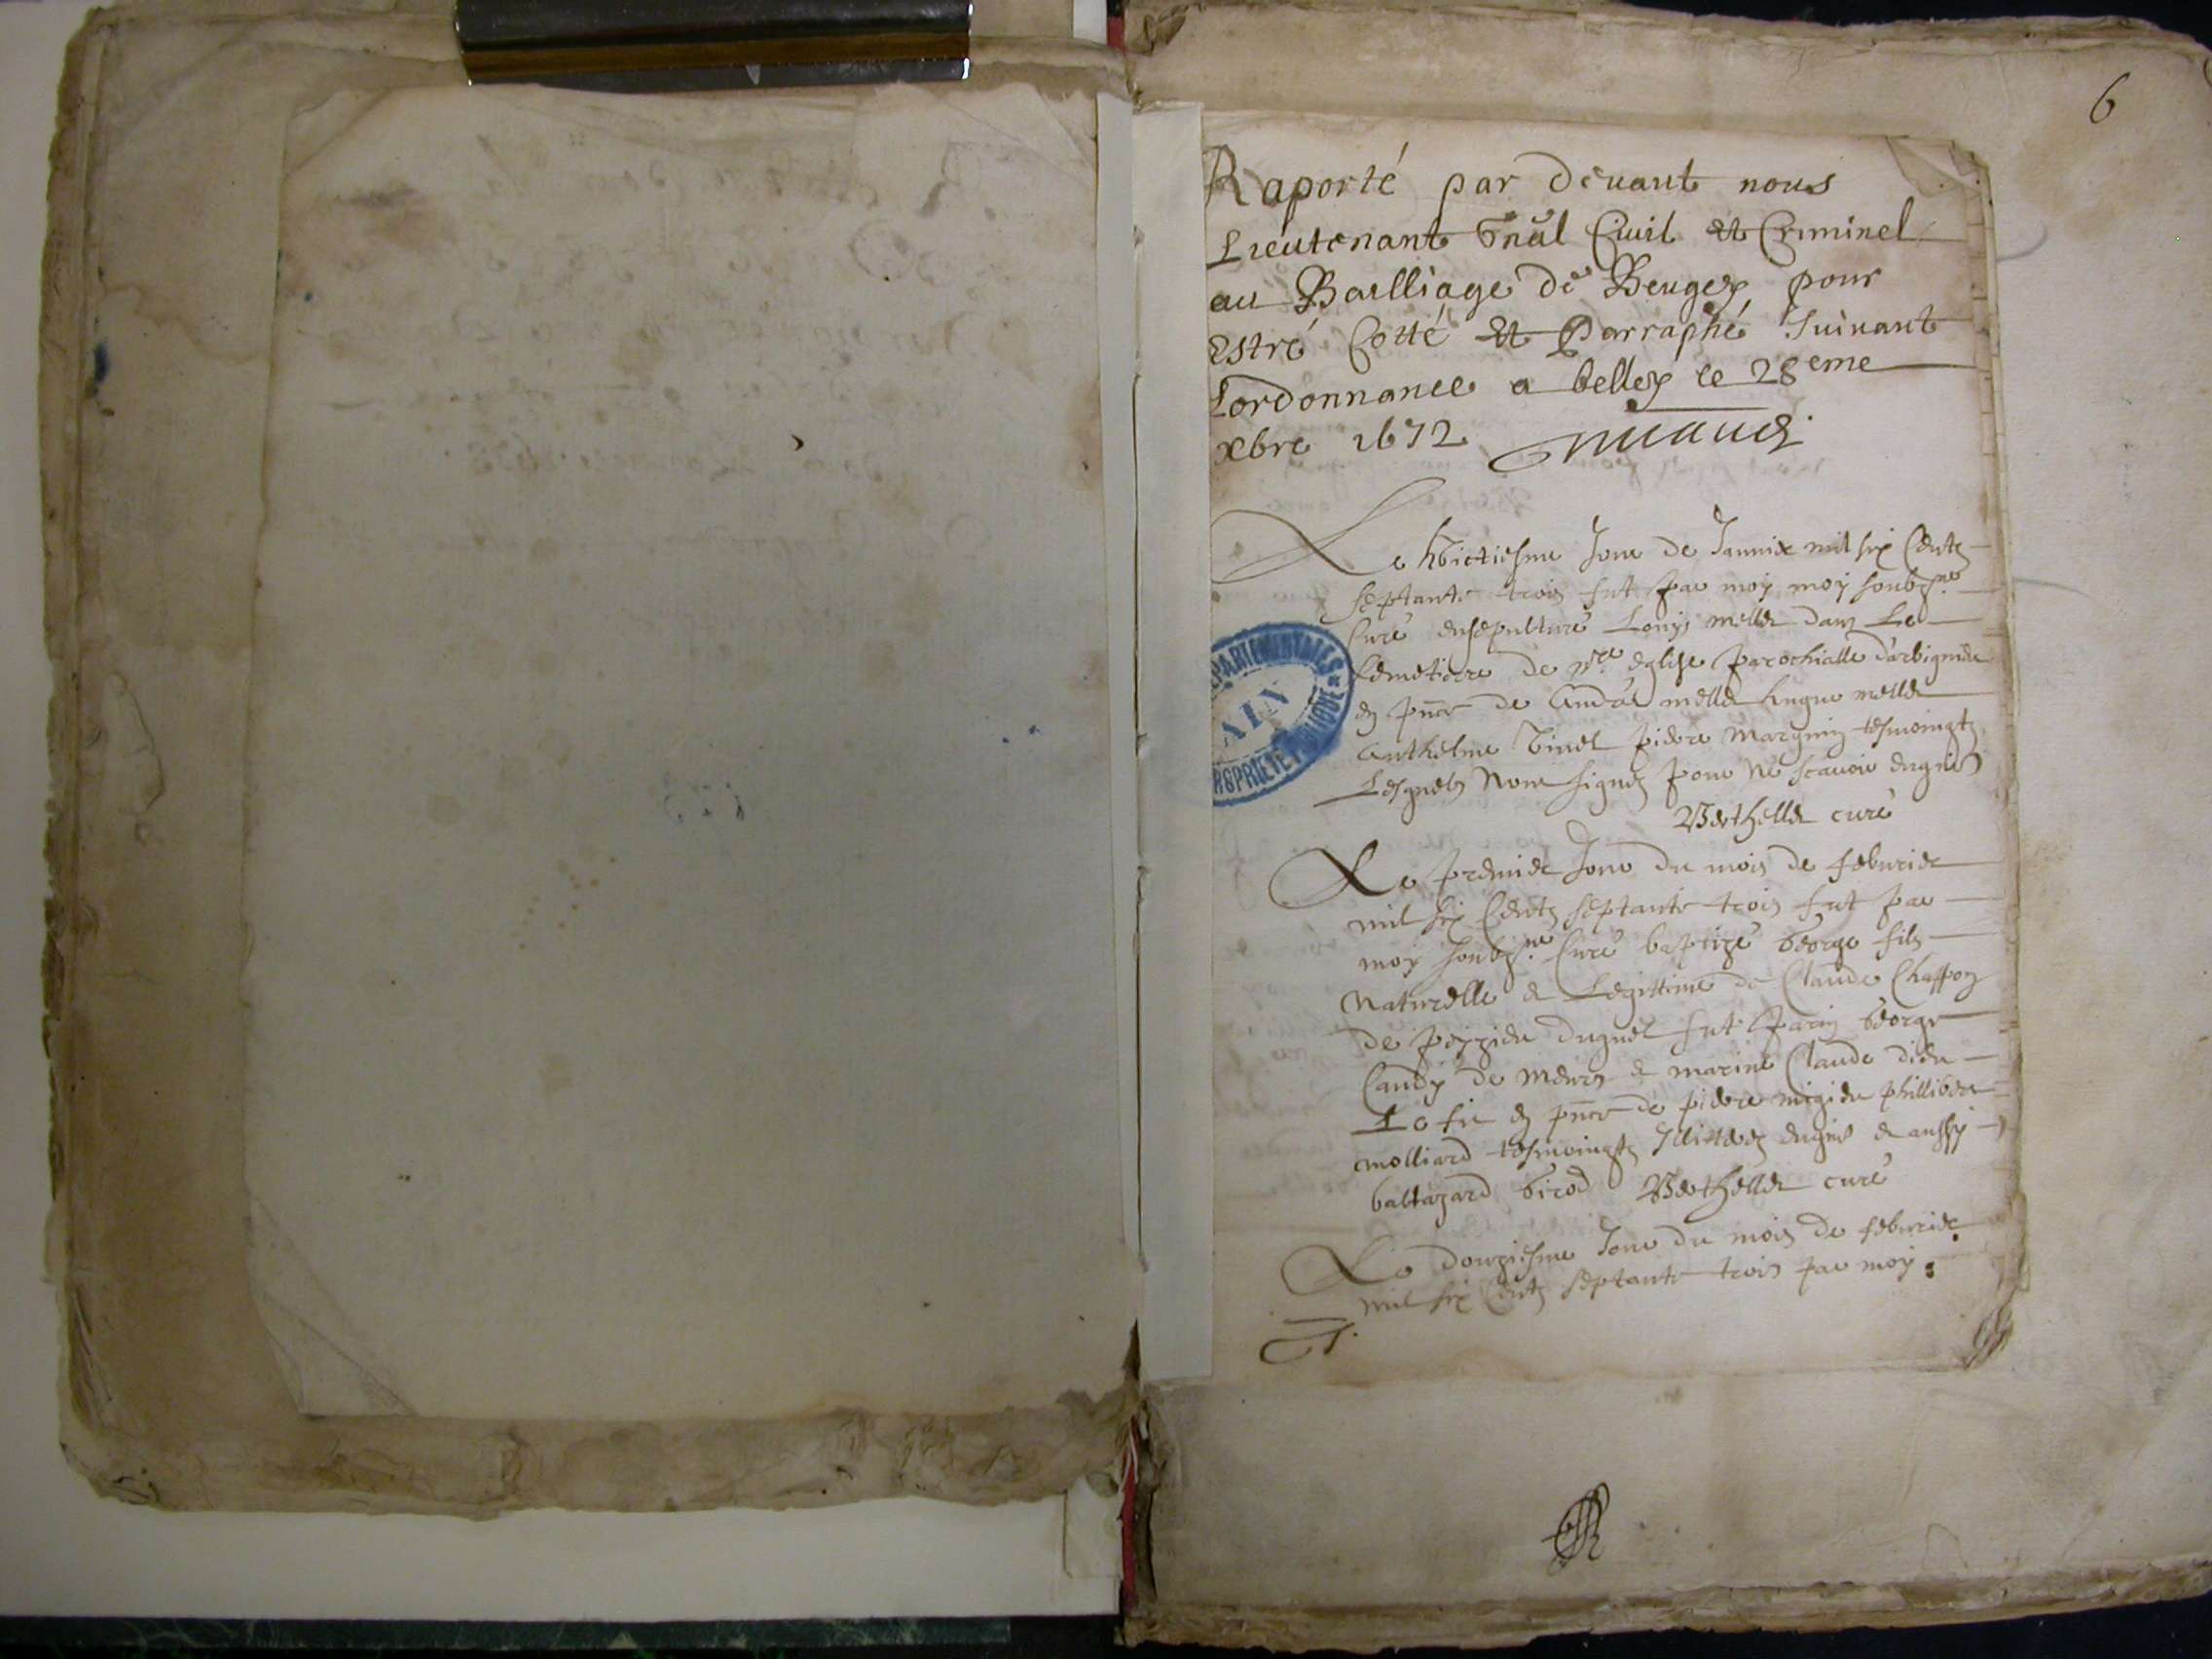 6
Raporté par devant nous
Lieutenant Gnãl Civil et Criminel
au Bailliage de Beugey pour
Estre Cotté Et Parraphé suivant
Lordonnance a belley le 28eme
xbre 1672
Le huictiesme Jour de Janvier mil six Centz
septante trois fut par moy moy soubsne
Curé ensepulturé Louys mellet dans Le
Cemetiere de nre Eglise parochialle d'arbignieu
en pnce de mellet hugue mellet
Anthelme pierre tesmoingts
Lesquels Nont signez pour Ne scavoir enquis
Berthellet curé
Le premier Jour du mois de febvrier
mil six Centz septante trois fut par
moy soubsne Curé baptizé George filz
Naturelle et Legittime de Claude Chappoz
de peyzieu duquel fut parin George
Candy de et marine Claude
en pnce de pierre phillibert
molliard tesmoingts Illiterez enquis et aussy
baltazard Girod Berthellet curé
Le douziesme Jour du mois de febvrier
mil six Centz septante trois par moy
DÉPARTEMENTALES
AIN
PROPRIÉTÉ PUBLIQUE